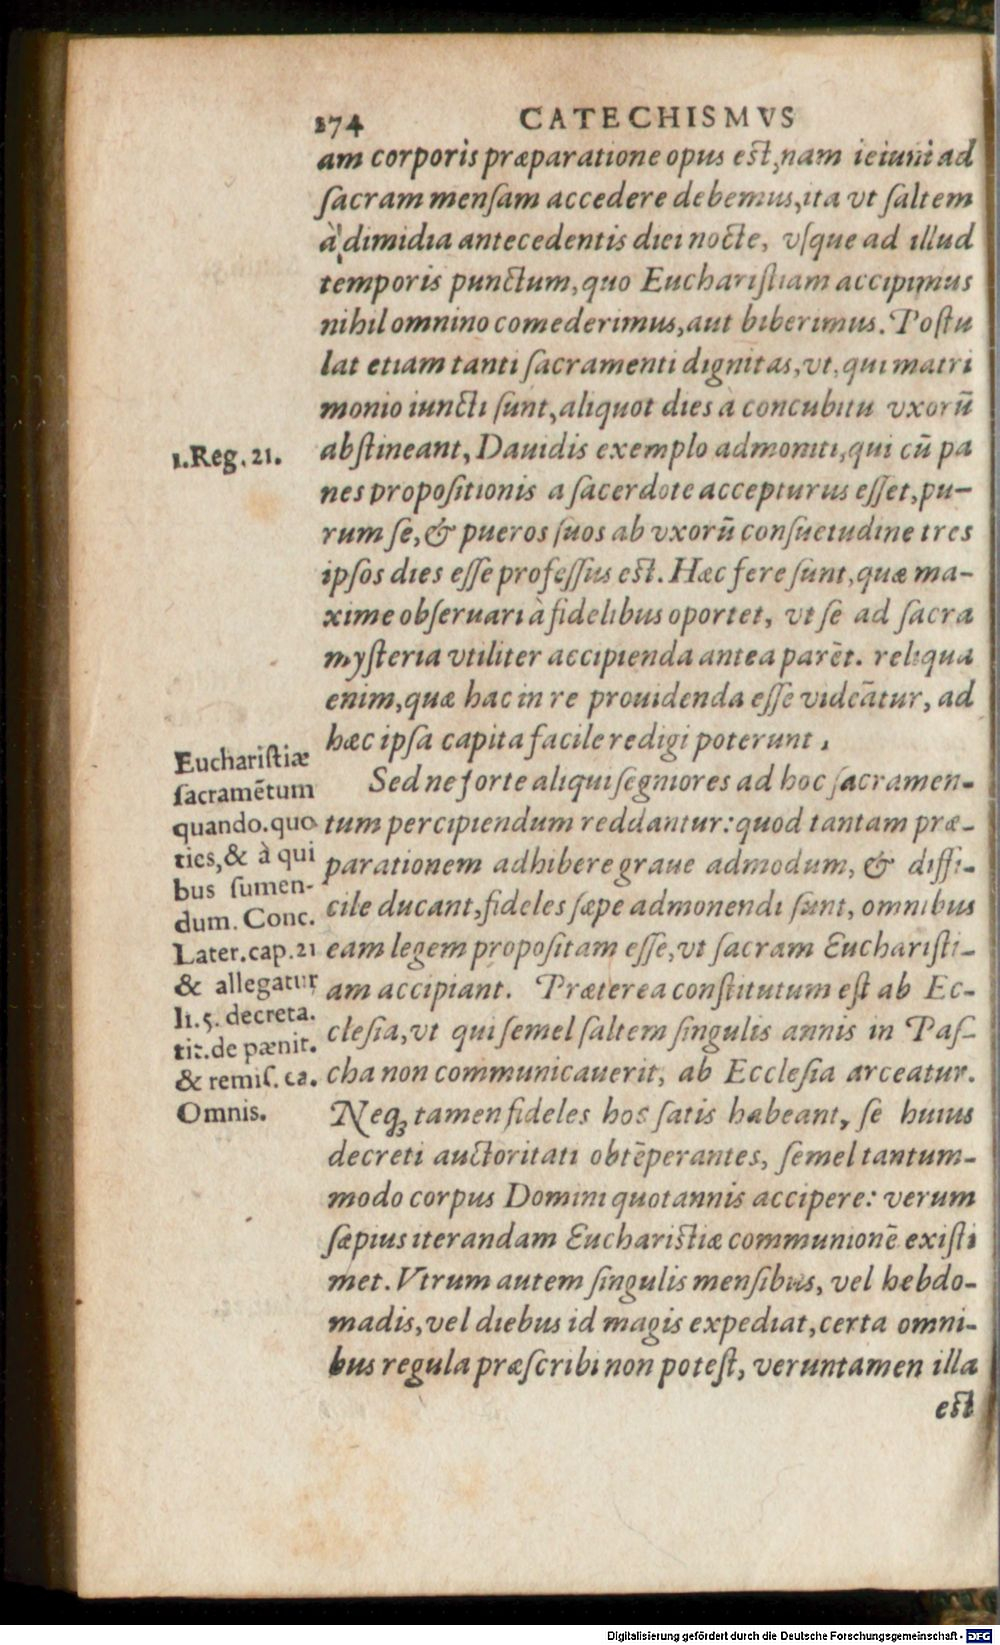 274 CATECHISMVS
am corporis præparatione opus est, nam ieiuni ad
ſacram menſam accedere debemus, ita vt ſaltem
à dimidia antecedentis diei nocte, vſque ad illud
temporis punctum, quo Euchariſtiam accipimus
nihil omnino comederimus, aut biberimus. Poſtu
lat etiam tanti ſacramenti dignitas, vt, qui matri
monio iuncti ſunt, aliquot dies à concubitu vxorũ
abſtineant, Dauidis exemplo admoniti, qui cũ pa
nes propoſitionis a ſacerdote accepturus eſſet, pu-
rum ſe, & pueros ſuos ab vxorũ conſuetudine tres
ipſos dies eſſe profeſſus est. Hæc fere ſunt, quæ ma-
xime obſeruari à fidelibus oportet, vt ſe ad ſacra
myſteria vtiliter accipienda antea parẽt. reliqua
enim, quæ hac in re prouidenda eſſe videãtur, ad
hæc ipſa capita facile redigi poterunt.
Sed ne forte aliqui ſegniores ad hoc ſacramen-
tum percipiendum reddantur: quod tantam præ-
parationem adhibere graue admodum, & diffi-
cile ducant, fideles ſæpe admonendi ſunt, omnibus
eam legem propoſitam eſſe, vt ſacram Euchariſti-
am accipiant. Præterea conſtitutum eſt ab Ec-
cleſia, vt qui ſemel ſaltem ſingulis annis in Paſ-
cha non communicauerit, ab Eccleſia arceatur.
Neq; tamen fideles hos ſatis habeant, ſe huius
decreti auctoritati obtẽperantes, ſemel tantum-
modo corpus Domini quotannis accipere: verum
ſæpius iterandam Euchariſtiæ communionẽ exiſti
met. Vtrum autem ſingulis menſibus, vel hebdo-
madis, vel diebus id magis expediat, certa omni-
bus regula præſcribi non poteſt, veruntamen illa
est
1. Reg. 21.
Euchariſtiæ
ſacramẽtum
quando. quo
ties, & à qui
bus ſumen-
dum. Conc.
Later. cap. 21
& allegatur
li. 5. decreta.
tit. de pænit.
& remiſ. ca.
Omnis.
Digitalisierung gefördert durch die Deutsche Forschungsgemeinschaft - DFG